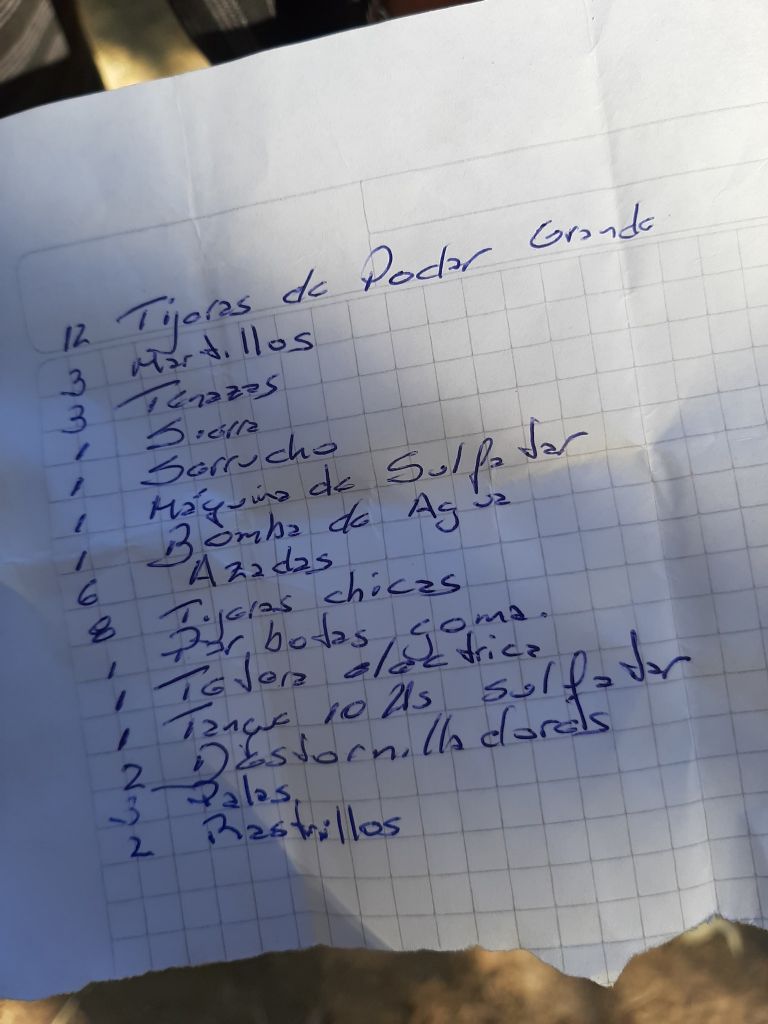 12 Tijeras de Podar Grande
3 Martillos
3 Tenazas
1 Sierra
1 Serrucho
1 Máquina de Sulfatar
1 Bomba de Agua
6 Azadas
8 Tijeras chicas
1 Par botas goma.
1 Tetera electrica
1 Tanque 10 lts sulfatar
2 Destornilladores
3 Palas
2 Rastrillos